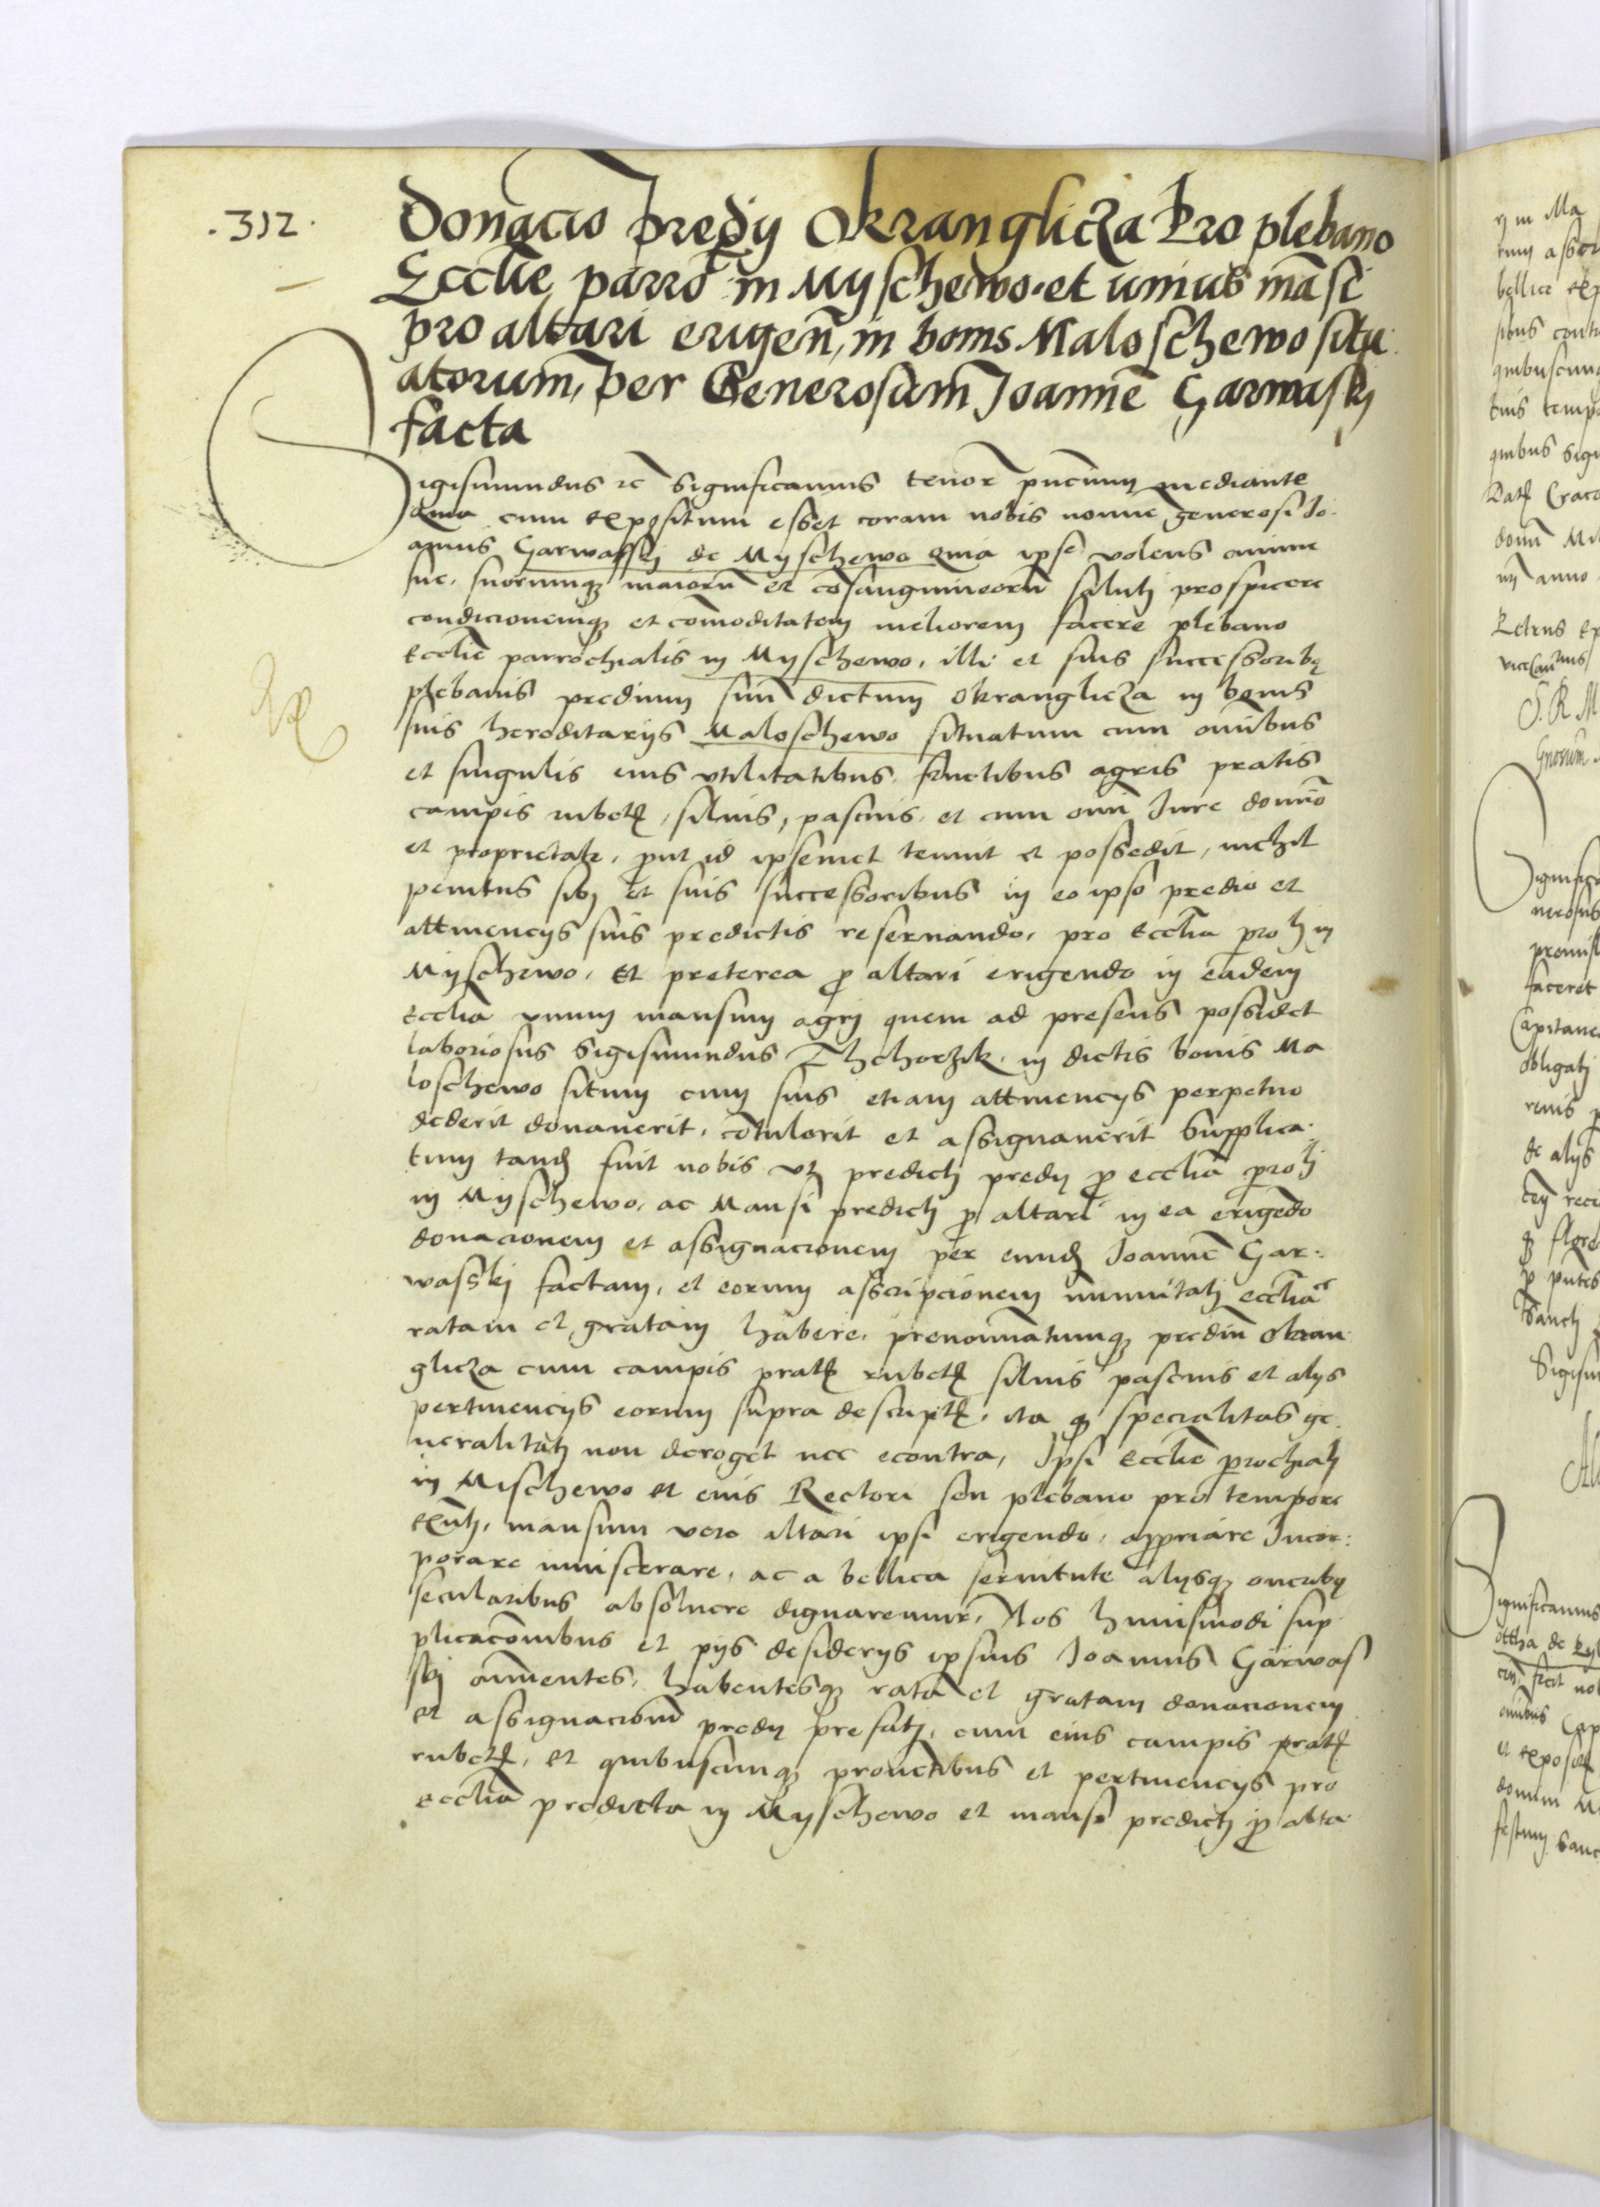 .312.
Donacio predij Okranglicza Pro plebano
Ecclie parro in Myschewo. et unius masi
pro altari erigen, in bonis Maloschewo situ
atorum, per Generosum Joanne Garwaski
facta
Sigismundus rc Significamus tenor pncium mediante
Quia cum expositum esset coram nobis nomine generosi Jo-
annis Garwasskj de Myschewo quia ipse volens anime
sue, suorumq maioru et cosanguineoru salutj prospicere
condicionemq et comoditatem meliorem facere plebano
Ecclie parrochialis in Myschewo, illi et suis successoribq
plebanis predium suu dictum Okranglicza in bonis
suis hereditarijs Maloschewo situatum cum omibus
et singulis eius vtilitatibus fructibus agris pratis
campis rubet, siluis, pascuis, et cum omi Jure domio
et proprietate, put id ipsemet tenuit et possedit, nichil
penitus sibj et suis successoribus in eo ipso predio et
attinencijs suis predictis reseruando, pro Ecclia parrochj in
Myschewo, Et preterea p altari erigendo in eadem
Ecclia vnum mansum agrj quem ad presens possidet
laboriosus Sigismundus Thchorzik in dictis bonis Ma
loschewo situm cum suis etiam attinencijs perpetuo
dederit donauerit, cotulerit et assignauerit Supplica-
tum tand fuit nobis vt predictj predij p ecclia parrochj
in Myschewo, ac Mansi predictj p altari in ea erigedo
donacionem et assignacionem per eund Joanne Gar-
wasskj factam, et eorum asscripcionem immunitatj ecclia
ratam et gratam habere, prenominatumq prediu Okran
glicza cum campis prat rubet siluis pascuis et alijs
pertinencijs eorum supra descript, ita q specialitas ge
neralitatj non deroget nec econtra, Ipsi Ecclie parrochialj
in Mischewo et eius Rectori seu plebano pro tempore
exntj, mansum vero altari ipsi erigendo, appriare Incor-
porare inuiscerare, ac a bellica seruitute alijsq oneribq
secularibus absoluere dignaremur, Nos huiusmodi sup
plicacionibus et pijs desiderijs ipsius Joannis Garwas
skj annuentes, habentesq rata et gratam donacionem
et assignacione predij prefatj, cum eius campis prat
rubet, et quibuscunq prouentibus et pertinencijs pro
ecclia predicta in Myschewo et mansi predictj p alta-